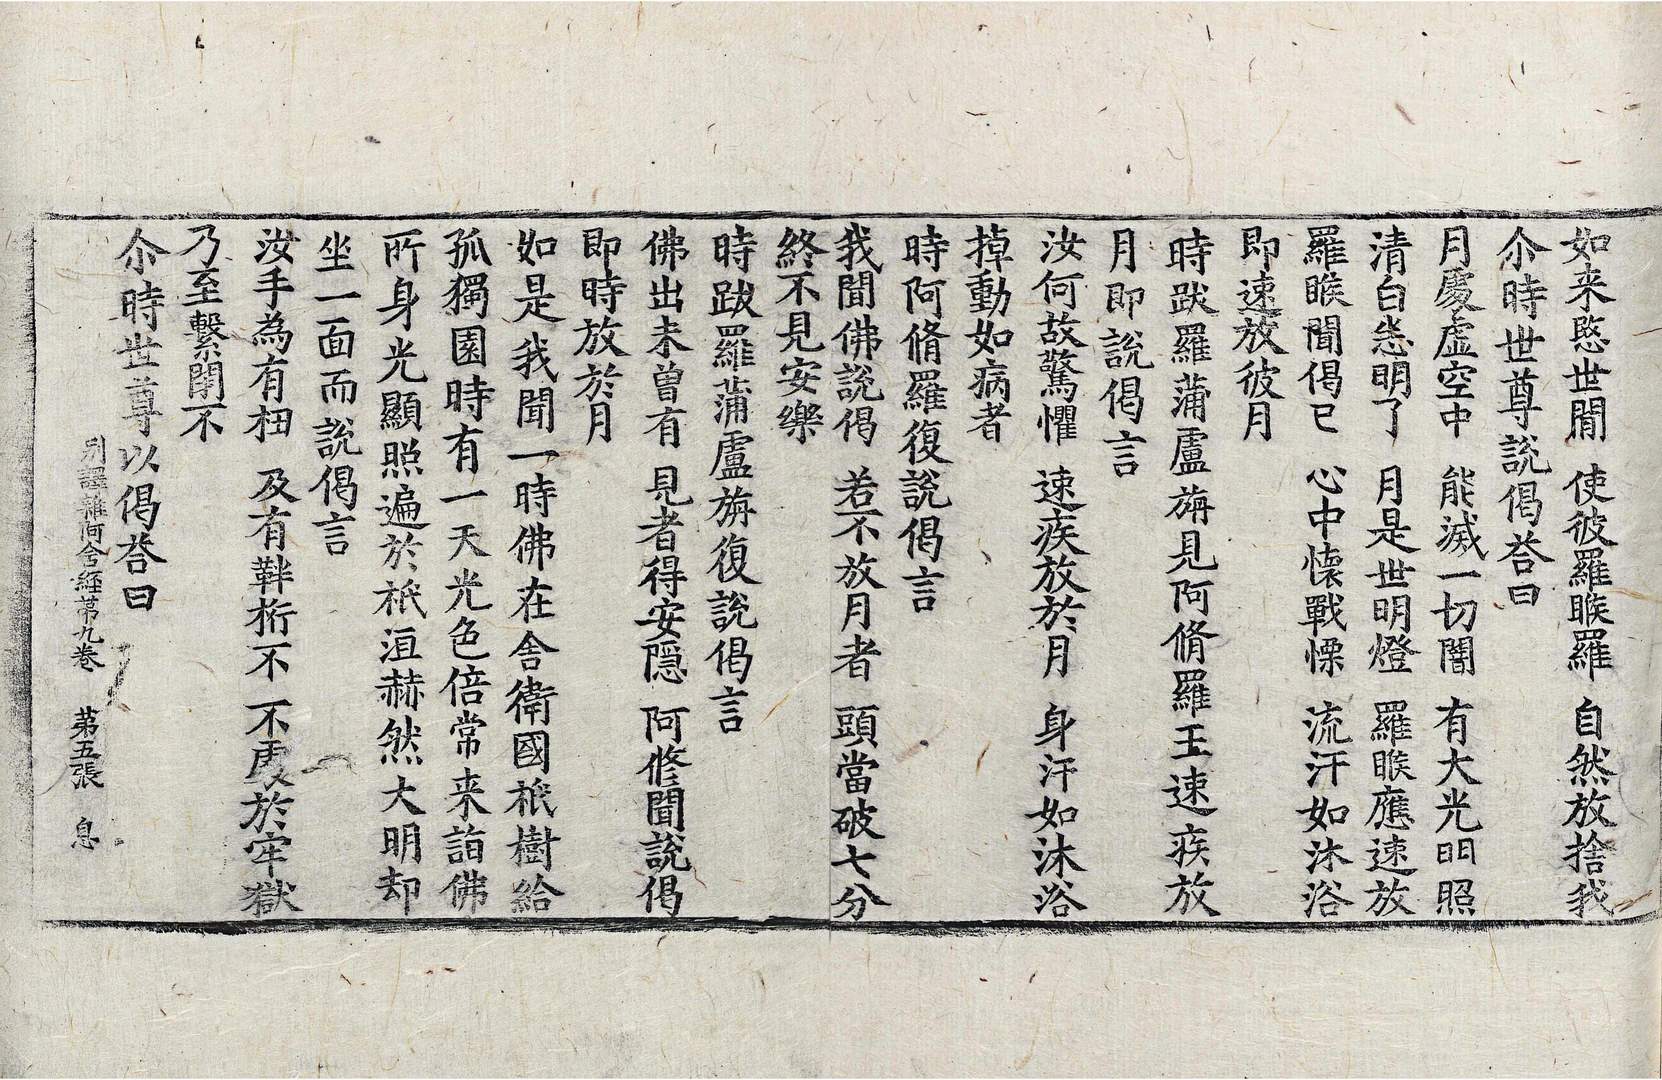 如来愍世閒　使彼羅睺羅　自然放捨我
尒時世尊說偈荅曰
月處虛空中　能滅一切闇　有大光明照
清白悉明了　月是世明燈　羅睺應速放
羅睺聞偈已　心中懷戰慄　流汗如沐浴
即速放彼月
時跋羅蒲盧旃見阿脩羅王速疾放
月即說偈言
汝何故驚懼　速疾放於月　身汗如沐浴
掉動如病者
時阿脩羅復說偈言
我聞佛說偈　若不放月者　頭當破七分
終不見安樂
時跋羅蒲盧旃復說偈言
佛出未曾有　見者得安隱　阿修聞說偈
即時放於月
如是我聞一時佛在舍衛國祇樹給
孤獨園時有一天光色倍常来詣佛
所身光顯照遍於祇洹赫然大明却
坐一面而說偈言
汝手為有杻　及有靽桁不　不處於牢獄
乃至繫閉不
尒時世尊以偈荅曰
別譯雜阿含経苐九卷　第五張　息